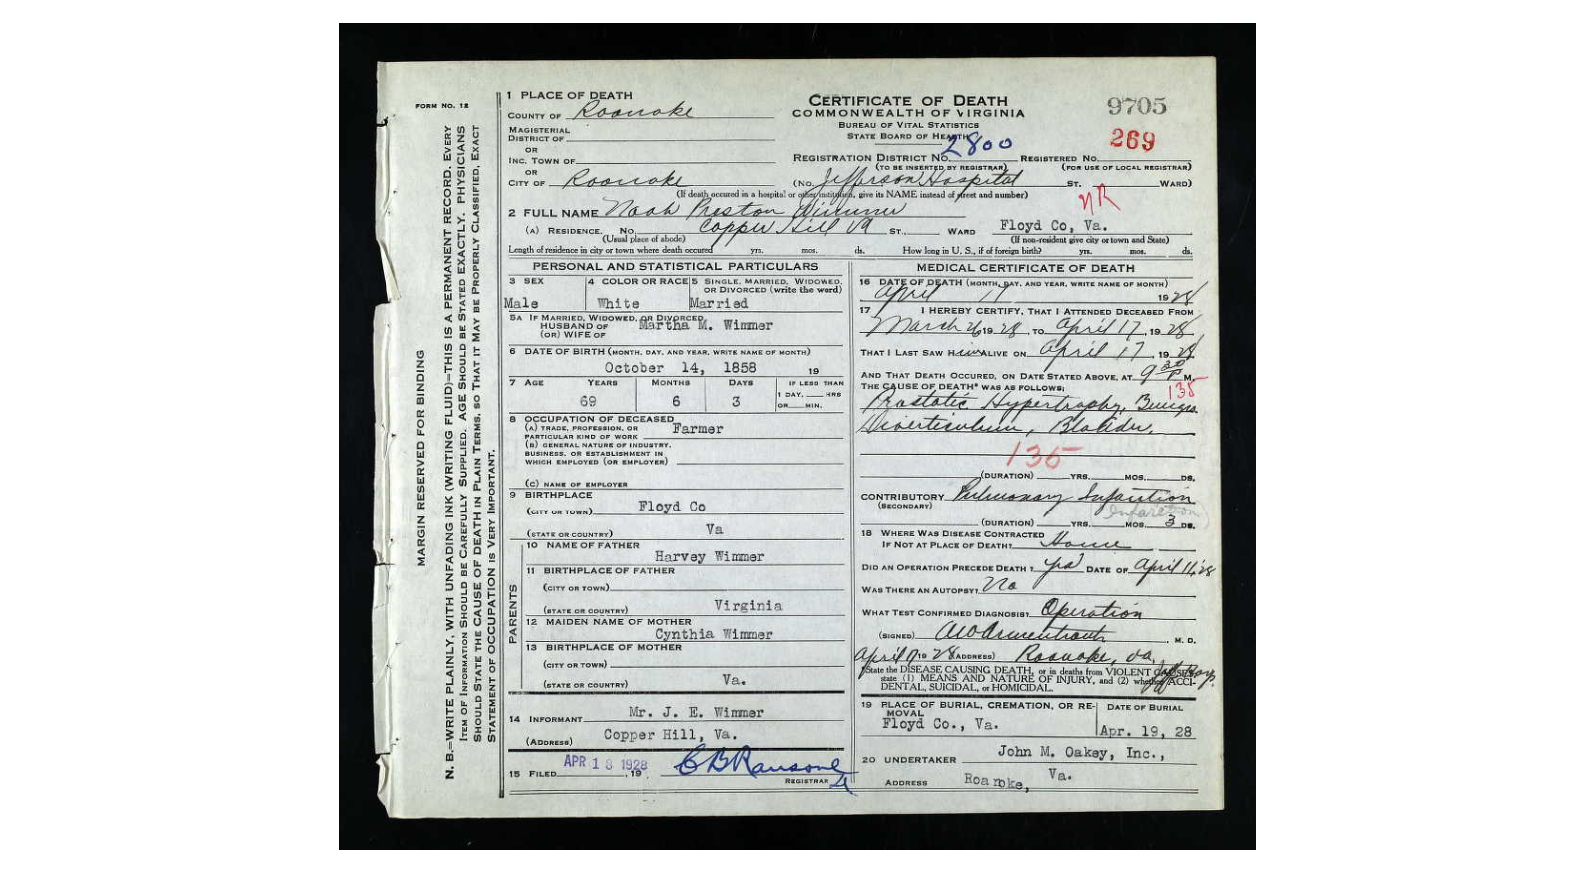 FORM NO. 12
MARGIN RESERVED FOR BINDING
N. B.—WRITE PLAINLY, WITH UNFADING INK (WRITING FLUID)—THIS IS A PERMANENT RECORD. EVERY
ITEM OF INFORMATION SHOULD BE CAREFULLY SUPPLIED. AGE SHOULD BE STATED EXACTLY. PHYSICIANS
SHOULD STATE THE CAUSE OF DEATH IN PLAIN TERMS, SO THAT IT MAY BE PROPERLY CLASSIFIED. EXACT
STATEMENT OF OCCUPATION IS VERY IMPORTANT.
1 PLACE OF DEATH
COUNTY OF Roanoke
MAGISTERIAL
DISTRICT OF
OR
INC. TOWN OF
OR
CITY OF Roanoke
CERTIFICATE OF DEATH
COMMONWEALTH OF VIRGINIA
BUREAU OF VITAL STATISTICS
STATE BOARD OF HEALTH
9705
269
REGISTRATION DISTRICT NO. 2800 REGISTERED NO.
(TO BE INSERTED BY REGISTRAR) (FOR USE OF LOCAL REGISTRAR)
(No. Jefferson Hospital ST. WARD)
(If death occured in a hospital or other institution, give its NAME instead of street and number)
NR
2 FULL NAME Noah Preston Wimmer
(A) RESIDENCE. No. Copper Hill Va ST., WARD Floyd Co, Va.
(Usual place of abode) (If non-resident give city or town and State)
Length of residence in city or town where death occured yrs. mos. ds. How long in U. S., if of foreign birth? yrs. mos. ds.
PERSONAL AND STATISTICAL PARTICULARS
3 SEX 4 COLOR OR RACE 5 SINGLE, MARRIED, WIDOWED,
OR DIVORCED (write the word)
Male White Married
5A IF MARRIED, WIDOWED, OR DIVORCED
HUSBAND OF Martha M. Wimmer
(OR) WIFE OF
6 DATE OF BIRTH (MONTH, DAY, AND YEAR, WRITE NAME OF MONTH)
October 14, 1858 19
7 AGE YEARS MONTHS DAYS IF LESS THAN
1 DAY, HRS
OR MIN.
69 6 3
8 OCCUPATION OF DECEASED
(A) TRADE, PROFESSION, OR
PARTICULAR KIND OF WORK Farmer
(B) GENERAL NATURE OF INDUSTRY,
BUSINESS, OR ESTABLISHMENT IN
WHICH EMPLOYED (OR EMPLOYER)
(C) NAME OF EMPLOYER
9 BIRTHPLACE
(CITY OR TOWN) Floyd Co
(STATE OR COUNTRY) Va
PARENTS
10 NAME OF FATHER
Harvey Wimmer
11 BIRTHPLACE OF FATHER
(CITY OR TOWN)
(STATE OR COUNTRY) Virginia
12 MAIDEN NAME OF MOTHER
Cynthia Wimmer
13 BIRTHPLACE OF MOTHER
(CITY OR TOWN)
(STATE OR COUNTRY) Va.
14 INFORMANT Mr. J. E. Wimmer
(ADDRESS) Copper Hill, Va.
15 FILED APR 18 1928, 19 C B Ransone
REGISTRAR
MEDICAL CERTIFICATE OF DEATH
16 DATE OF DEATH (MONTH, DAY, AND YEAR, WRITE NAME OF MONTH)
April 17 1928
17 I HEREBY CERTIFY, THAT I ATTENDED DECEASED FROM
March 26 1928, TO April 17, 1928
THAT I LAST SAW him ALIVE ON April 17, 1928
AND THAT DEATH OCCURED, ON DATE STATED ABOVE, AT 9 30 P M.
THE CAUSE OF DEATH* WAS AS FOLLOWS: 135
Prostatic Hypertrophy, Benign
Diverticulum, Bladder.
135
(DURATION) YRS. MOS. DS.
CONTRIBUTORY Pulmonary Infarction
(SECONDARY) Infarction
(DURATION) YRS. MOS. 3 DS.
18 WHERE WAS DISEASE CONTRACTED
IF NOT AT PLACE OF DEATH? Home
DID AN OPERATION PRECEDE DEATH? yes DATE OF April 11, 28
WAS THERE AN AUTOPSY? No
WHAT TEST CONFIRMED DIAGNOSIS? Operation
(SIGNED) Armentrout, M. D.
April 17 19 28 (ADDRESS) Roanoke, Va,
*State the DISEASE CAUSING DEATH, or in deaths from VIOLENT CAUSES, Jeff Hosp.
state (1) MEANS AND NATURE OF INJURY, and (2) whether ACCI-
DENTAL, SUICIDAL, or HOMICIDAL.
19 PLACE OF BURIAL, CREMATION, OR RE-
MOVAL DATE OF BURIAL
Floyd Co., Va. Apr. 19, 28
20 UNDERTAKER John M. Oakey, Inc.,
ADDRESS Roanoke, Va.